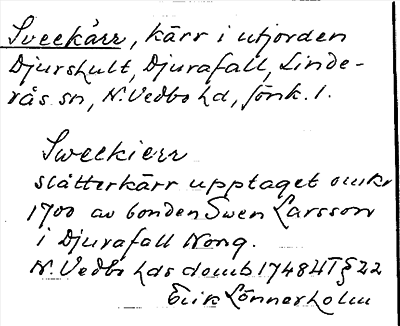 Sveekärr, kärr i utjorden
Djurshult, Djurafall, Linde-
rås sn, N. Vedbo hd, Jönk. l.
Sweekierr
slåtterkärr upptaget omkr
1700 av bonden Swen Larsson
i Djurafall Norrg.
N. Vedbo hds domb 1748 HT § 22
Erik Lönnerholm